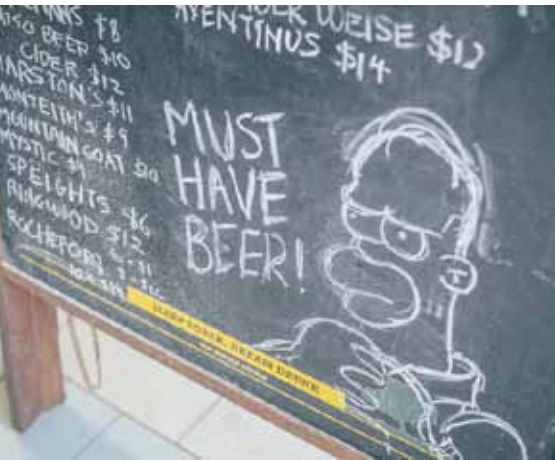 $8
BEER $10
CIDER $12
MARSTON'S $11
MONTEITH'S $9
MOUNTAIN GOAT $10
MYSTIC
SPEIGHTS $6
RINGWOOD $12
ROCHEFORT
WEISE $12
AVENTINUS $14
MUST
HAVE
BEER!
SLEEP SOBER, DREAM DRUNK